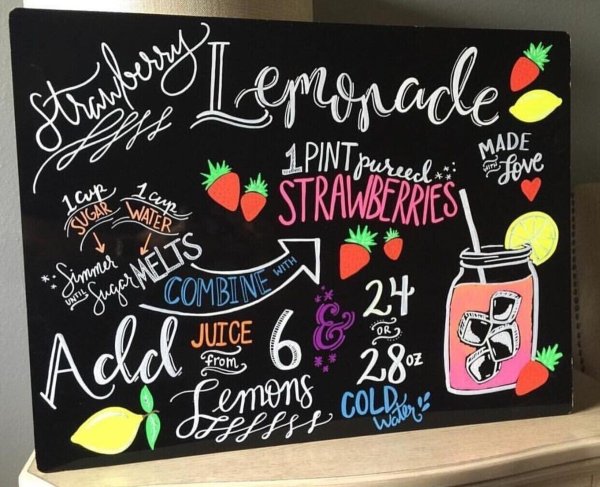 Strawberry Lemonade
1 PINT pureed
STRAWBERRIES
MADE
WITH Love
1 cup
SUGAR
1 cup
WATER
Simmer
UNTIL Sugar MELTS
COMBINE WITH
Add JUICE
from 6
Lemons
&
24
OR
28 oz
COLD
Water